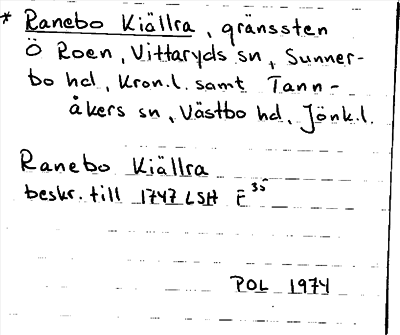 * Ranebo Kiällra, gränssten
Ö Roen, Vittaryds sn, Sunner-
bo hd, Kron.l. samt Tann-
åkers sn, Västbo hd, Jönk.l.
Ranebo Kiällra
beskr. till 1747 LSH E 35
POL 1974